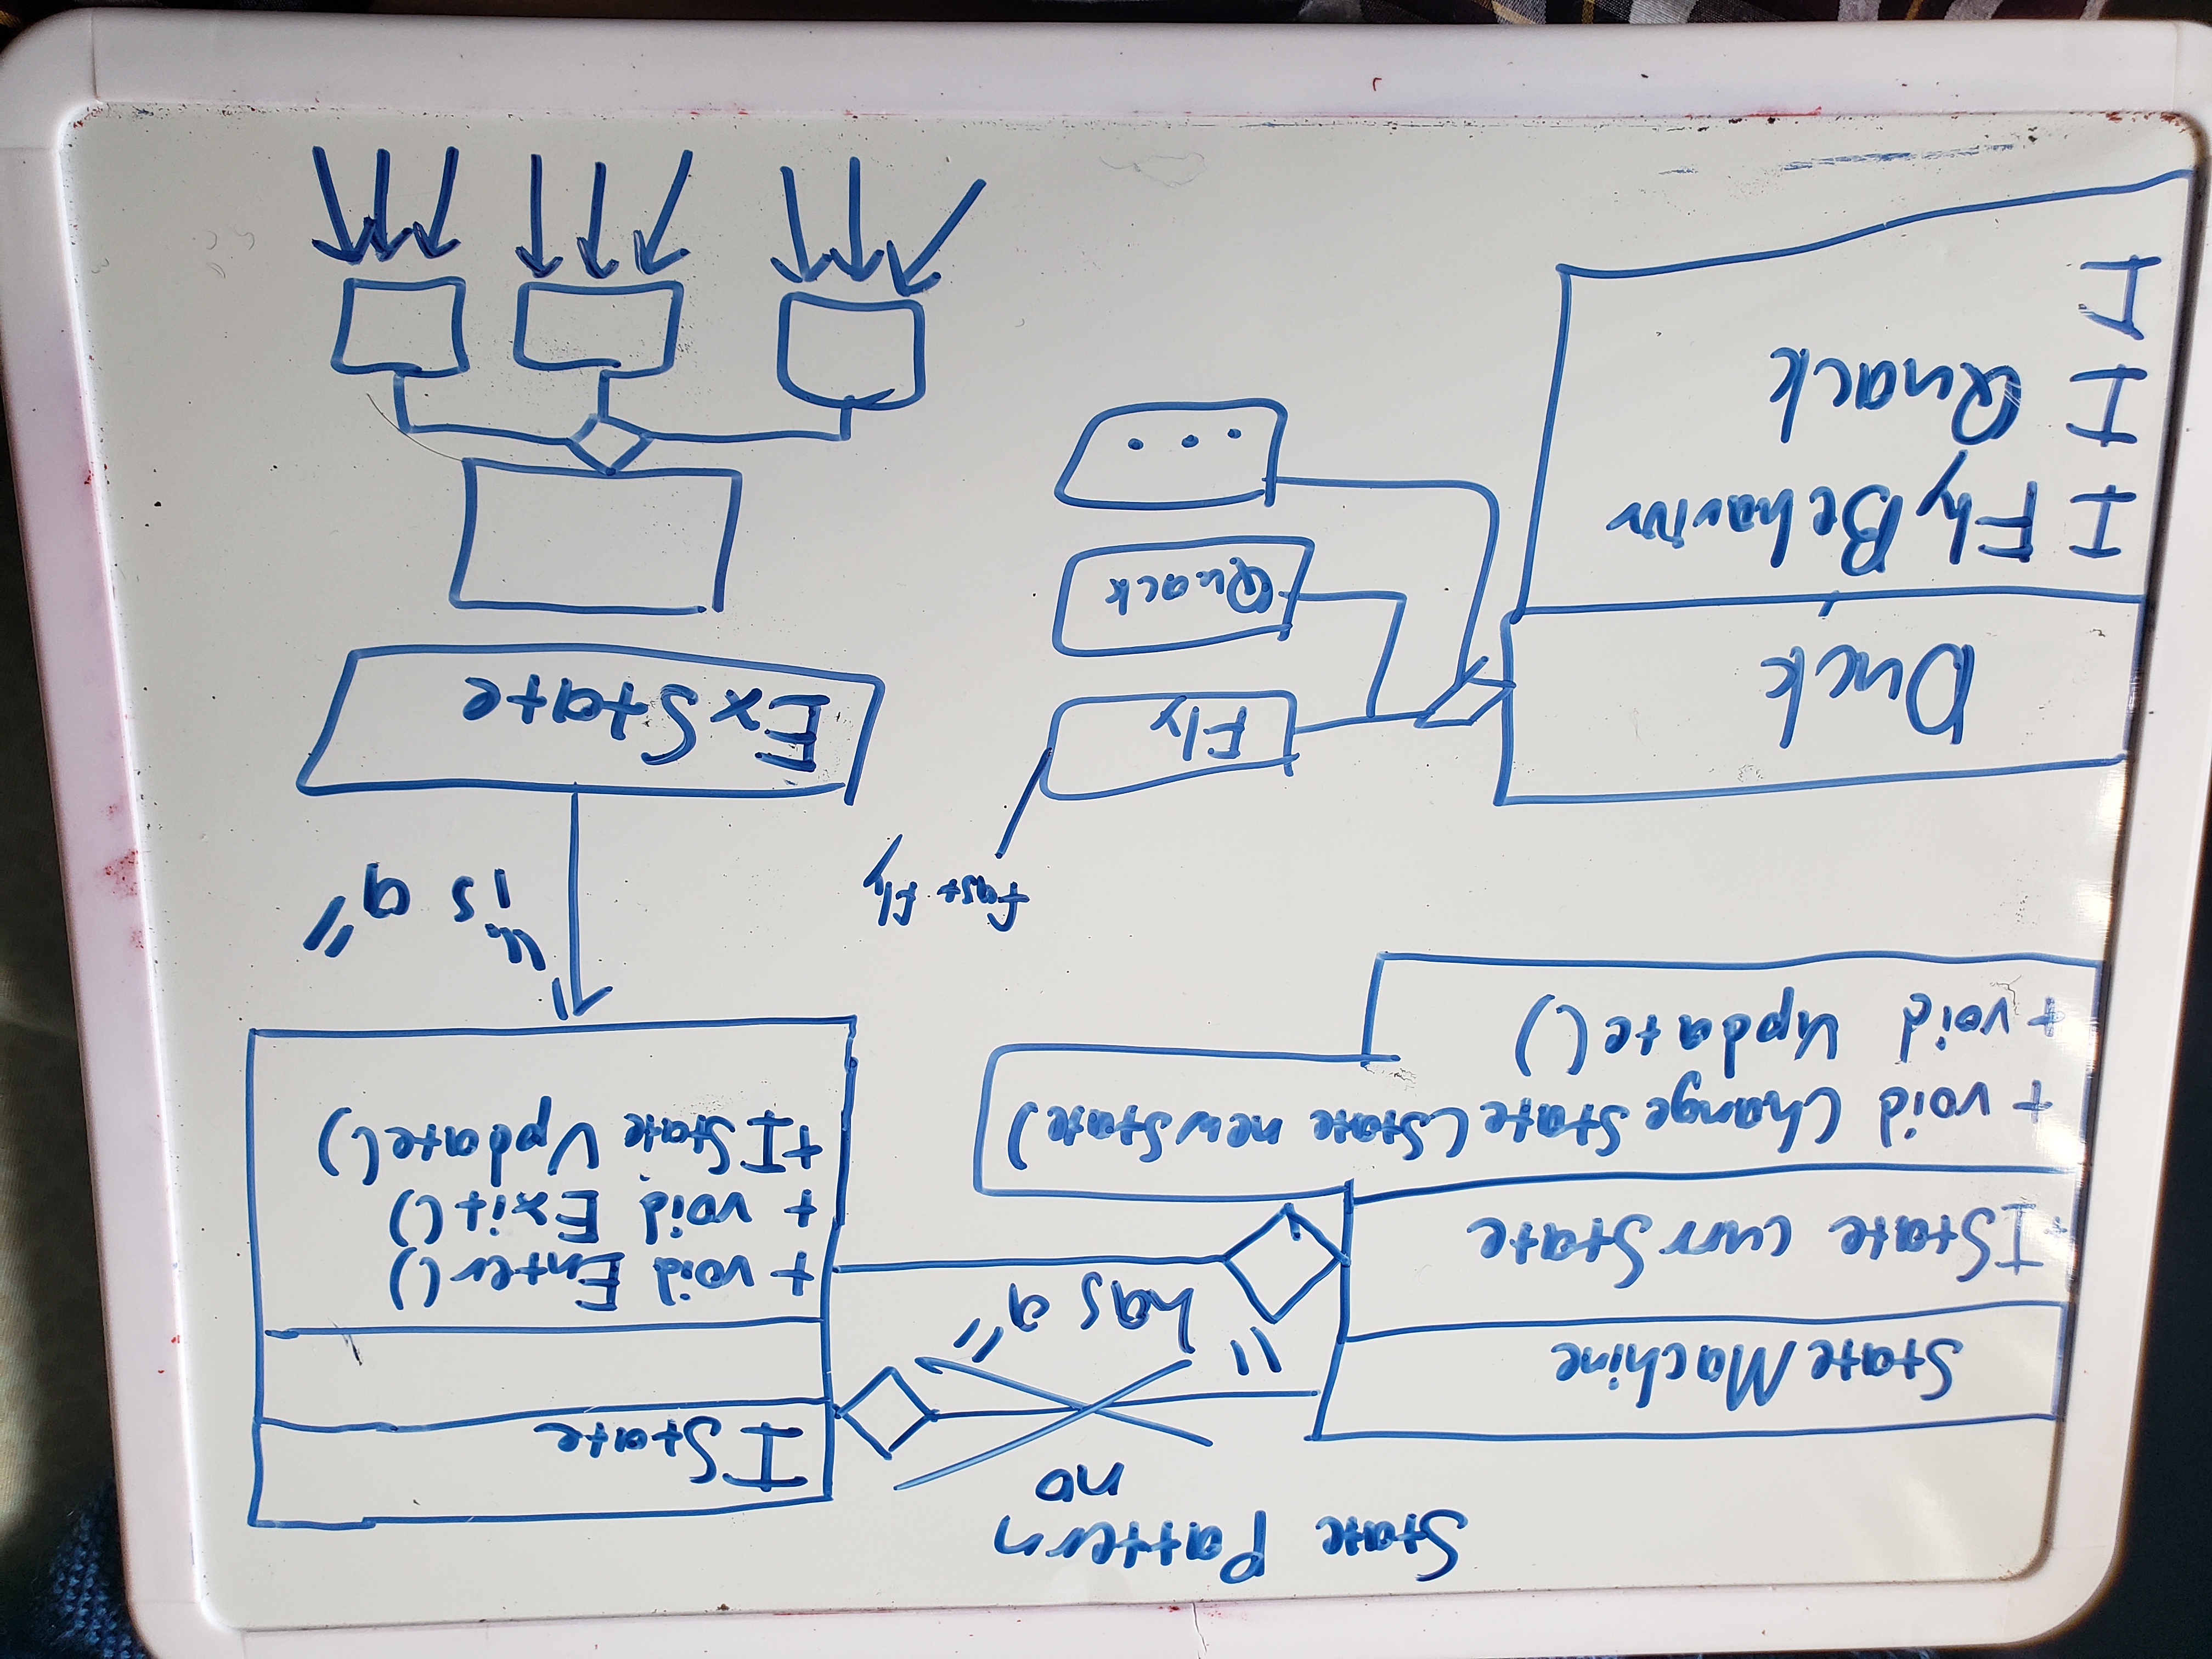 State Pattern
no
StateMachine
IState currState
+ void ChangeState(State newState)
+ void Update()
"has a"
IState
+ void Enter()
+ void Exit()
+IState Update()
"is a"
ExState
fast fly
Duck
I FlyBehavior
I Quack
I
Fly
Quack
...